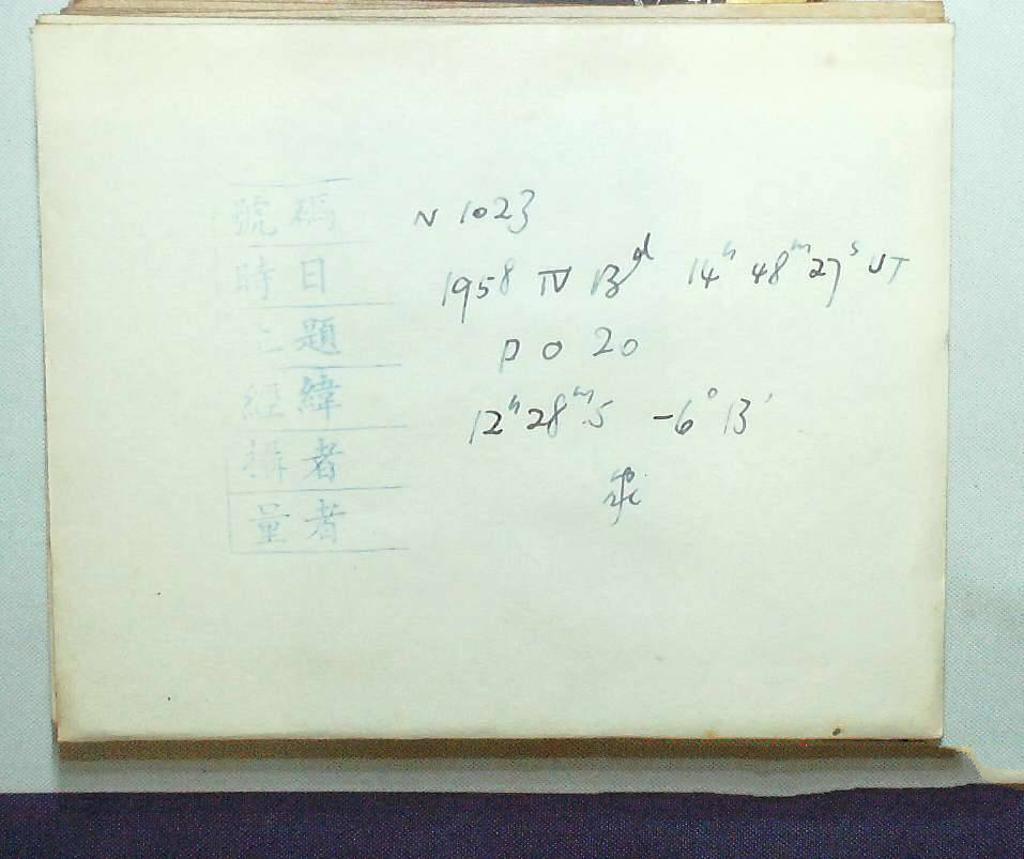 號碼 N 1023
時日 1958 IV 13d 14h 48m 27s UT
題 P O 20
經緯 12h 28m.5 -6° 13'
攝者
量者